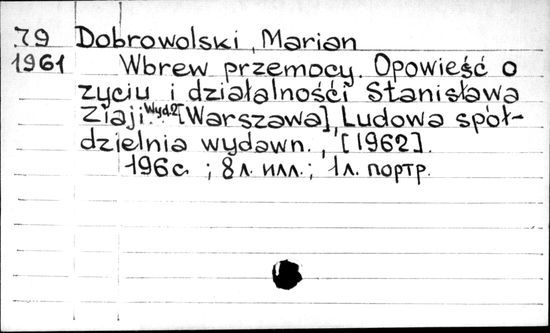 79 Dobrowolski, Marian
1961 Wbrew przemocy. Opowieść o
życiu i działalności Stanisława
Ziaji. Wyd. 2 [Warszawa], Ludowa spół-
dzielnia wydawn., [1962].
196 с. ; 8 л. илл.; 1 л. портр.